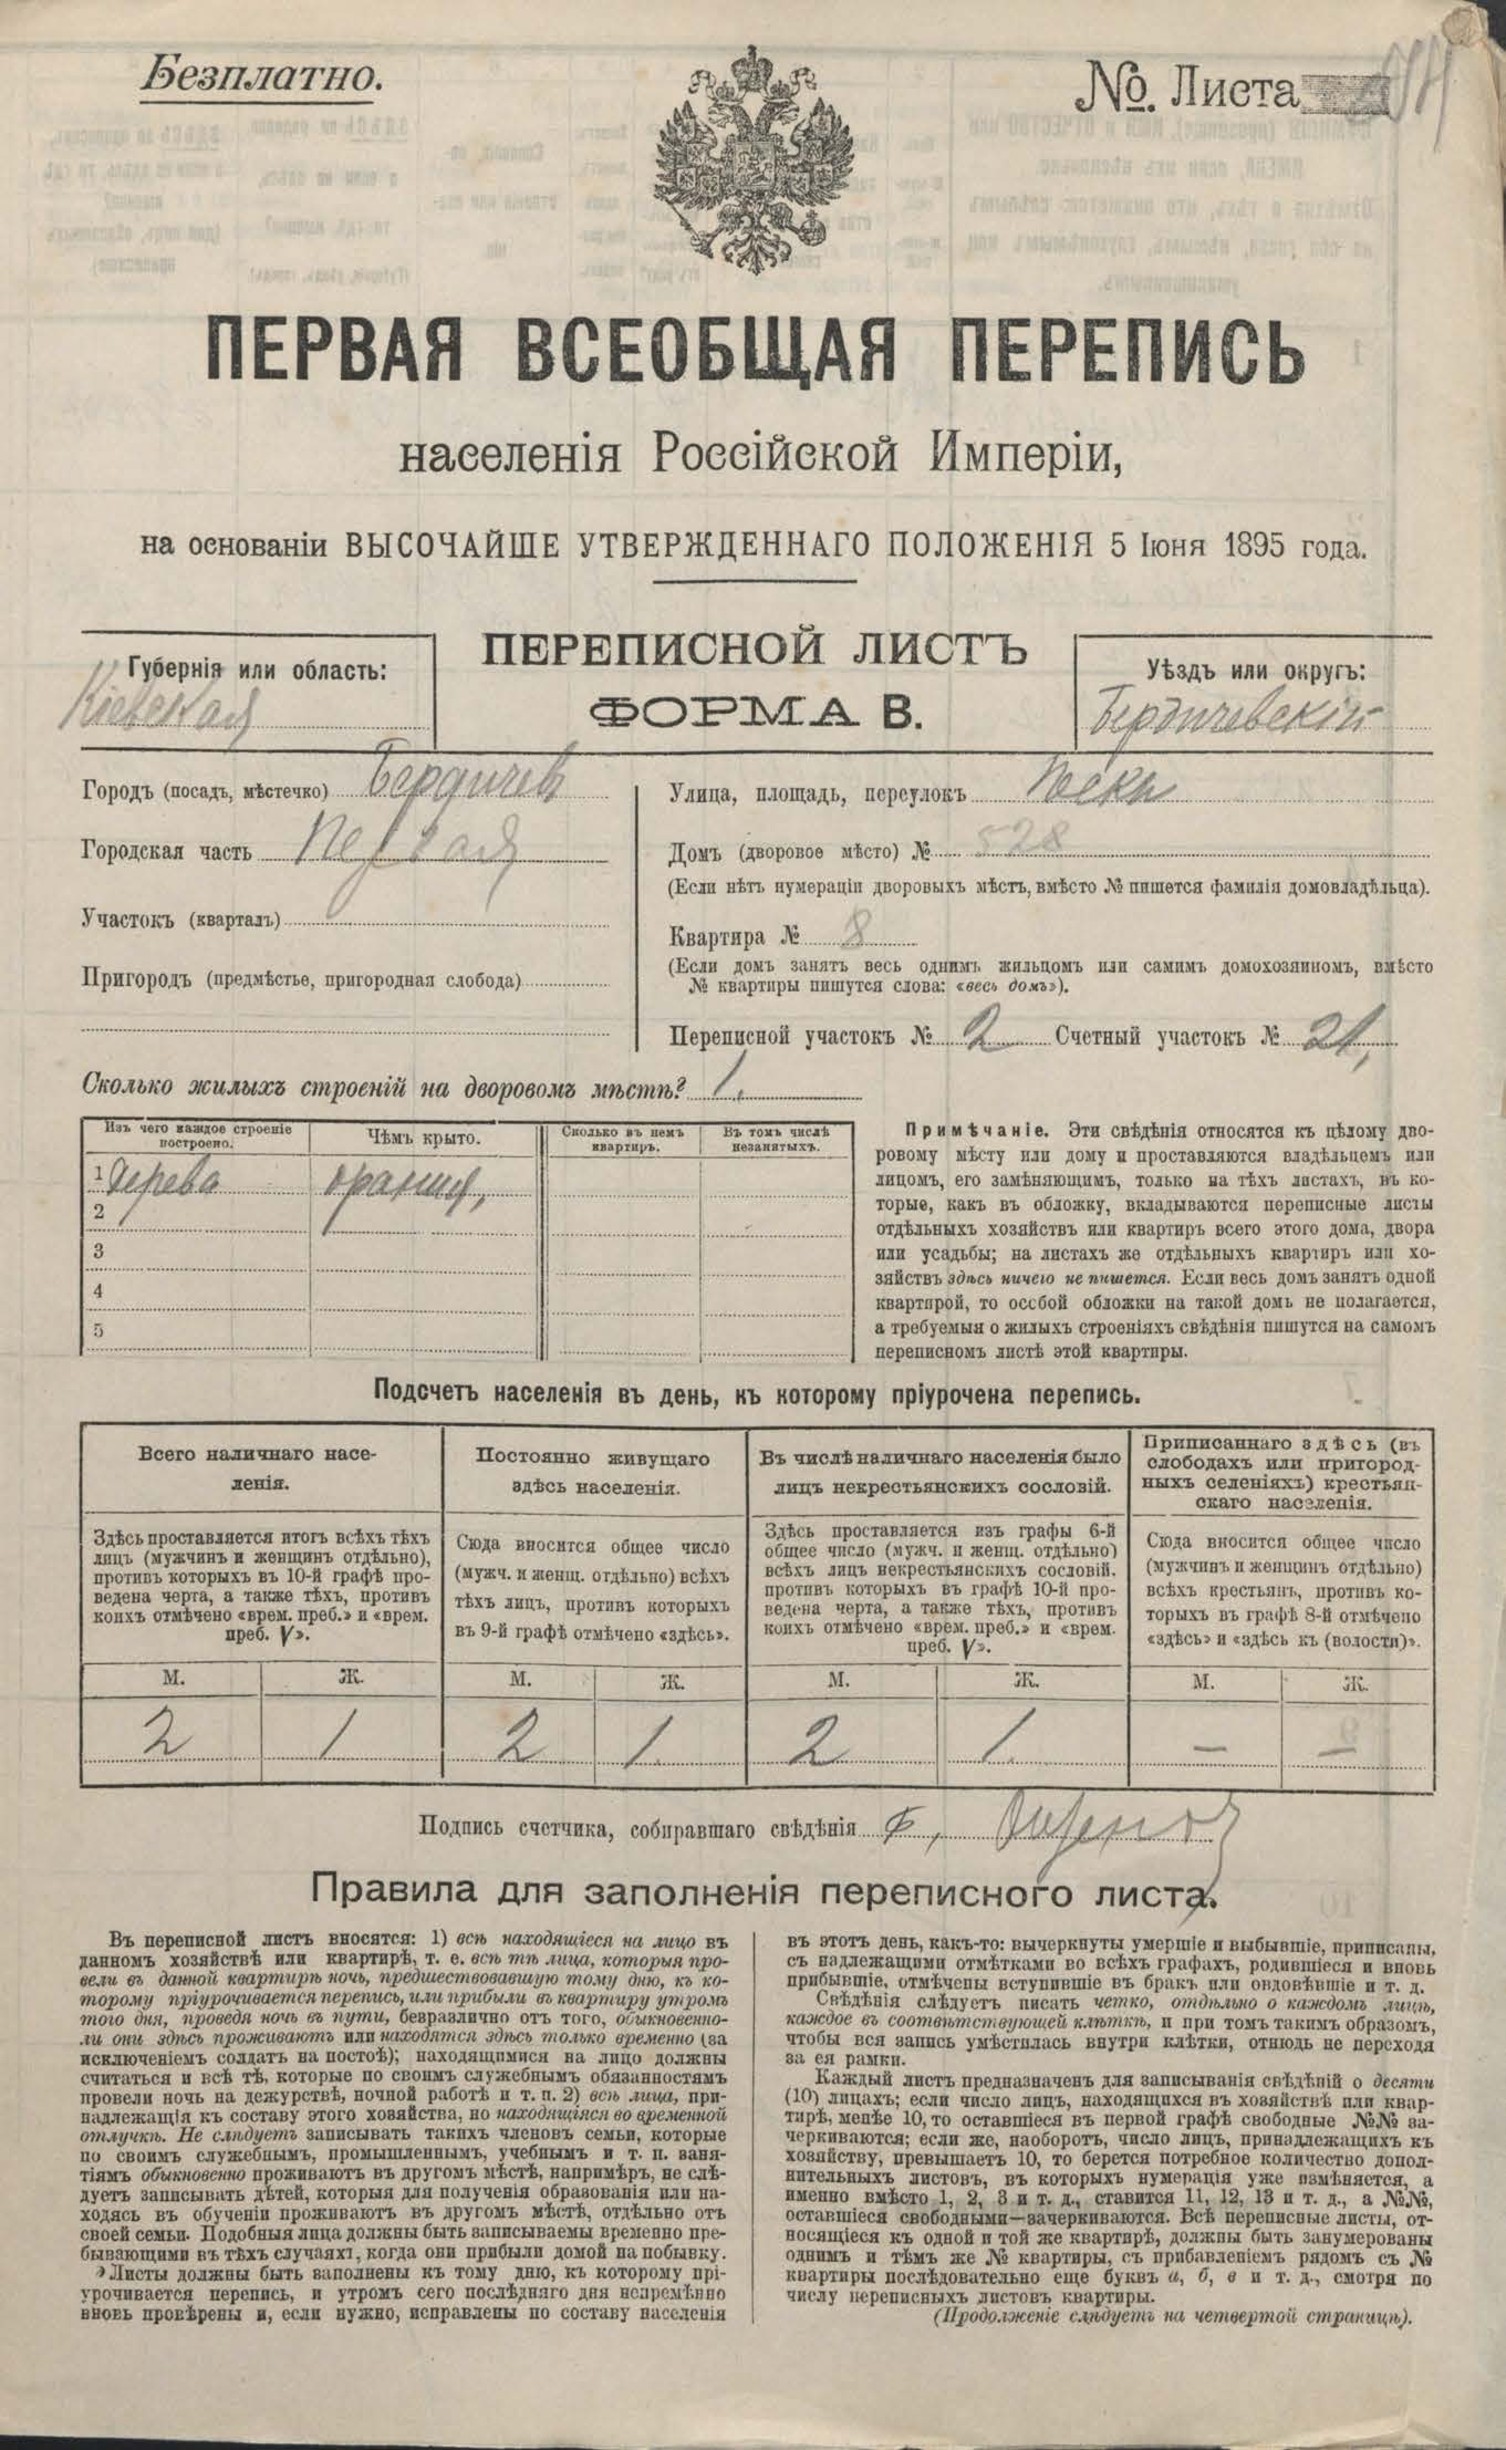 Безплатно.
№. Листа
ПЕРВАЯ ВСЕОБЩАЯ ПЕРЕПИСЬ
населенія Россійской Имперіи,
на основаніи ВЫСОЧАЙШЕ УТВЕРЖДЕННАГО ПОЛОЖЕНІЯ 5 Іюня 1895 года.
ПЕРЕПИСНОЙ ЛИСТЪ
ФОРМА В.
Губернія или область:
Кіевская
Уѣздъ или округъ:
Бердичевскій
Городъ (посадъ, мѣстечко) Бердичев
Городская часть Первая
Участокъ (кварталъ)
Пригородъ (предмѣстье, пригородная слобода)
Улица, площадь, переулокъ Пески
Домъ (дворовое мѣсто) № 528
(Если нѣтъ нумераціи дворовыхъ мѣстъ, вмѣсто № пишется фамилія домовладѣльца).
Квартира № 8
(Если домъ занятъ весь однимъ жильцомъ или самимъ домохозяиномъ, вмѣсто
№ квартиры пишутся слова: «весь домъ»).
Переписной участокъ № 2 Счетный участокъ № 21,
Сколько жилыхъ строеній на дворовомъ мѣстѣ? 1.
Изъ чего каждое строеніе
построено.
Чѣмъ крыто.
Сколько въ немъ
квартиръ.
Въ томъ числѣ
незанятыхъ.
1 Дерева
2
3
4
5
Примѣчаніе. Эти свѣдѣнія относятся къ цѣлому дво-
ровому мѣсту или дому и проставляются владѣльцемъ или
лицомъ, его замѣняющимъ, только на тѣхъ листахъ, въ ко-
торые, какъ въ обложку, вкладываются переписные листы
отдѣльныхъ хозяйствъ или квартиръ всего этого дома, двора
или усадьбы; на листахъ же отдѣльныхъ квартиръ или хо-
зяйствъ здѣсь ничего не пишется. Если весь домъ занятъ одной
квартирой, то особой обложки на такой домъ не полагается,
а требуемыя о жилыхъ строеніяхъ свѣдѣнія пишутся на самомъ
переписномъ листѣ этой квартиры.
Подсчетъ населенія въ день, къ которому пріурочена перепись.
Всего наличнаго насе-
ленія.
Постоянно живущаго
здѣсь населенія.
Въ числѣ наличнаго населенія было
лицъ некрестьянскихъ сословій.
Приписаннаго здѣсь (въ
слободахъ или пригород-
ныхъ селеніяхъ) крестьян-
скаго населенія.
Здѣсь проставляется итогъ всѣхъ тѣхъ
лицъ (мужчинъ и женщинъ отдѣльно),
противъ которыхъ въ 10-й графѣ про-
ведена черта, а также тѣхъ, противъ
коихъ отмѣчено «врем. преб.» и «врем.
преб. V».
Сюда вносится общее число
(мужч. и женщ. отдѣльно) всѣхъ
тѣхъ лицъ, противъ которыхъ
въ 9-й графѣ отмѣчено «здѣсь».
Здѣсь проставляется изъ графы 6-й
общее число (мужч. и женщ. отдѣльно)
всѣхъ лицъ некрестьянскихъ сословій,
противъ которыхъ въ графѣ 10-й про-
ведена черта, а также тѣхъ, противъ
коихъ отмѣчено «врем. преб.» и «врем.
преб. V».
Сюда вносится общее число
(мужчинъ и женщинъ отдѣльно)
всѣхъ крестьянъ, противъ ко-
торыхъ въ графѣ 8-й отмѣчено
«здѣсь» и «здѣсь къ (волости)».
М. Ж. М. Ж. М. Ж. М. Ж.
2 1 2 1. 2 1. — —
Подпись счетчика, собиравшаго свѣдѣнія Ф,
Правила для заполненія переписного листа.
Въ переписной листъ вносятся: 1) всѣ находящіеся на лицо въ
данномъ хозяйствѣ или квартирѣ, т. е. всѣ тѣ лица, которыя про-
вели въ данной квартирѣ ночь, предшествовавшую тому дню, къ ко-
торому пріурочивается перепись, или прибыли въ квартиру утромъ
того дня, проведя ночь въ пути, безразлично отъ того, обыкновенно-
ли они здѣсь проживаютъ или находятся здѣсь только временно (за
исключеніемъ солдатъ на постоѣ); находящимися на лицо должны
считаться и всѣ тѣ, которые по своимъ служебнымъ обязанностямъ
провели ночь на дежурствѣ, ночной работѣ и т. п. 2) всѣ лица, при-
надлежащія къ составу этого хозяйства, но находящіяся во временной
отлучкѣ. Не слѣдуетъ записывать такихъ членовъ семьи, которые
по своимъ служебнымъ, промышленнымъ, учебнымъ и т. п. заня-
тіямъ обыкновенно проживаютъ въ другомъ мѣстѣ, напримѣръ, не слѣ-
дуетъ записывать дѣтей, которыя для полученія образованія или на-
ходясь въ обученіи проживаютъ въ другомъ мѣстѣ, отдѣльно отъ
своей семьи. Подобныя лица должны быть записываемы временно пре-
бывающими въ тѣхъ случаяхъ, когда они прибыли домой на побывку.
Листы должны быть заполнены къ тому дню, къ которому прі-
урочивается перепись, и утромъ сего послѣдняго дня непремѣнно
вновь провѣрены и, если нужно, исправлены по составу населенія
въ этотъ день, какъ-то: вычеркнуты умершіе и выбывшіе, приписаны,
съ надлежащими отмѣтками во всѣхъ графахъ, родившіеся и вновь
прибывшіе, отмѣчены вступившіе въ бракъ или овдовѣвшіе и т. д.
Свѣдѣнія слѣдуетъ писать четко, отдѣльно о каждомъ лицѣ,
каждое въ соотвѣтствующей клѣткѣ, и при томъ такимъ образомъ,
чтобы вся запись умѣстилась внутри клѣтки, отнюдь не переходя
за ея рамки.
Каждый листъ предназначенъ для записыванія свѣдѣній о десяти
(10) лицахъ; если число лицъ, находящихся въ хозяйствѣ или квар-
тирѣ, менѣе 10, то оставшіеся въ первой графѣ свободные №№ за-
черкиваются; если же, наоборотъ, число лицъ, принадлежащихъ къ
хозяйству, превышаетъ 10, то берется потребное количество допол-
нительныхъ листовъ, въ которыхъ нумерація уже измѣняется, а
именно вмѣсто 1, 2, 3 и т. д., ставится 11, 12, 13 и т. д., а №№,
оставшіеся свободными—зачеркиваются. Всѣ переписные листы, от-
носящіеся къ одной и той же квартирѣ, должны быть занумерованы
однимъ и тѣмъ же № квартиры, съ прибавленіемъ рядомъ съ №
квартиры послѣдовательно еще буквъ а, б, в и т. д., смотря по
числу переписныхъ листовъ квартиры.
(Продолженіе слѣдуетъ на четвертой страницѣ).